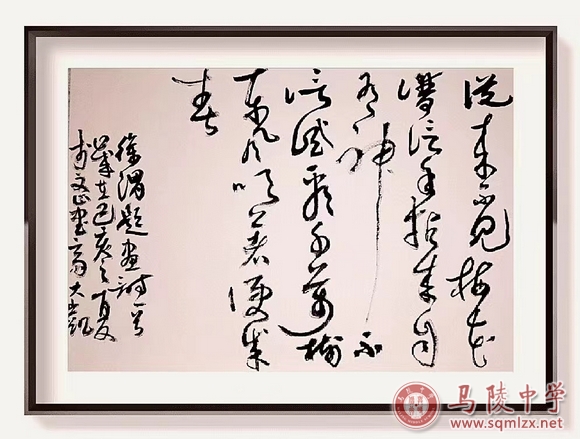 從来不見梅花
譜信手拈来自
有神不
信試看千萬樹
東風吹着便成
春
徐渭題画詩一首
歲在己亥之夏
大凯
马陵中学
www.sqmlzx.net